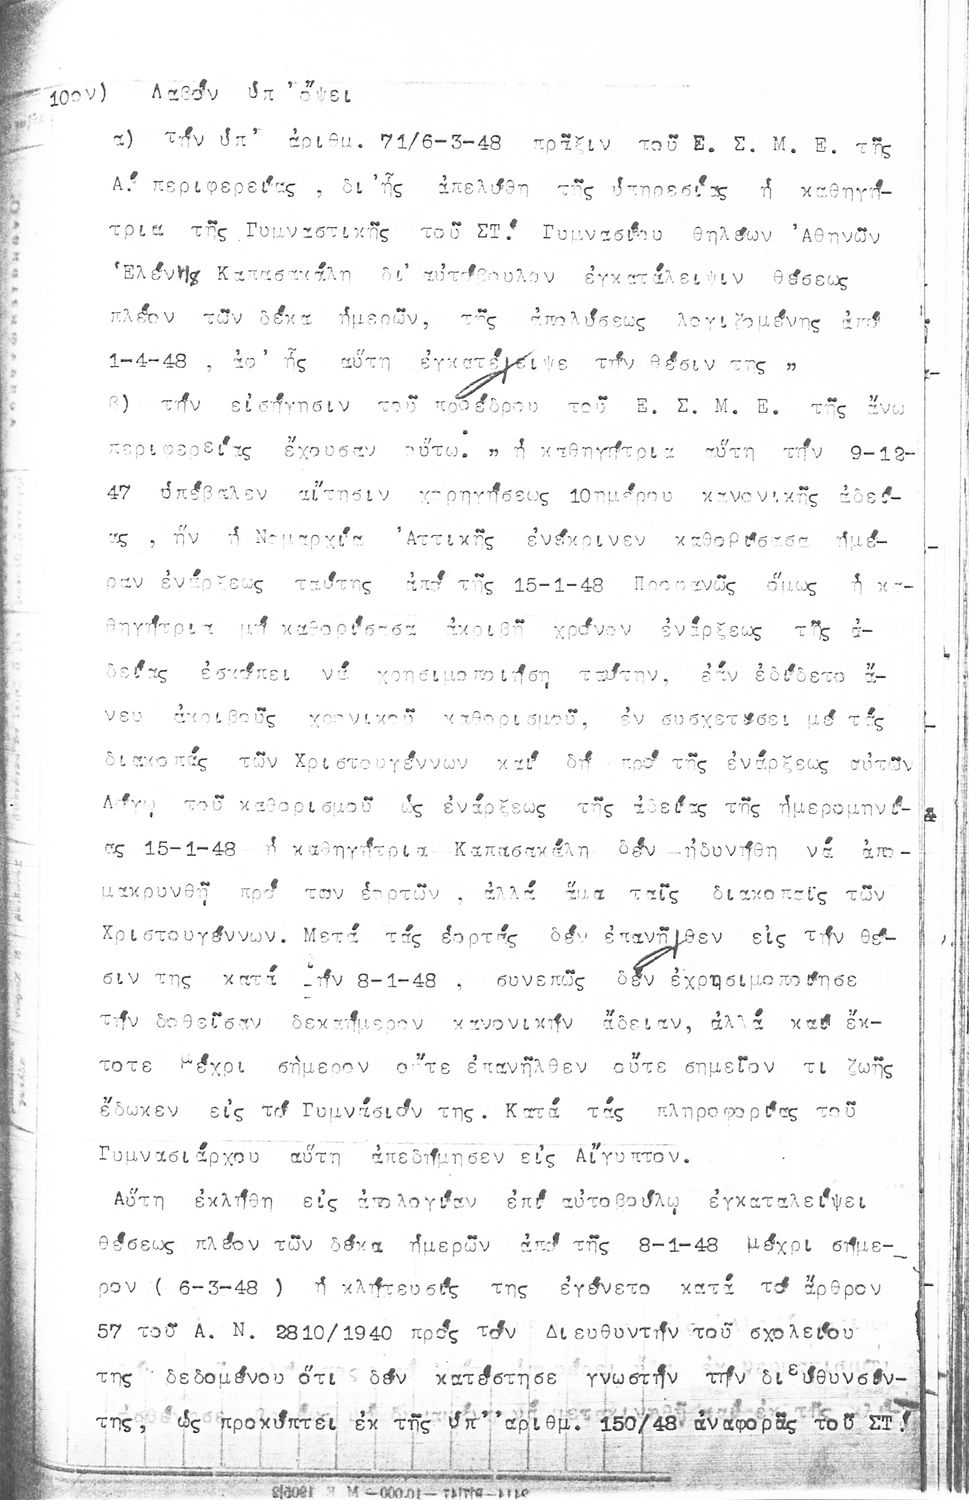 10ον) Λαβόν ὑπ'ὄψει
α) τήν ὑπ' ἀριθμ. 71/6-3-48 πρᾶξιν τοῦ Ε. Σ. Μ. Ε. τῆς
Α΄ περιφερείας , δι'ἧς ἀπελύθη τῆς ὑπηρεσίας ἡ καθηγή-
τρια τῆς Γυμναστικῆς τοῦ ΣΤ΄ Γυμνασίου θηλέων 'Αθηνῶν
'Ελένης Καπασακάλη δι' αὐτόβουλον ἐγκατάλειψιν θέσεως
πλέον τῶν δέκα ἡμερῶν, τῆς ἀπολύσεως λογιζομένης ἀπό
1-4-48 , ἀφ' ἧς αὕτη ἐγκατέλειψε τήν θέσιν της "
β) τήν εἰσήγησιν τοῦ προέδρου τοῦ Ε. Σ. Μ. Ε. τῆς ἄνω
περιφερείας ἔχουσαν οὕτω: " ἡ καθηγήτρια αὕτη τήν 9-12-
47 ὑπέβαλεν αἴτησιν χορηγήσεως 10ημέρου κανονικῆς ἀδεί-
ας , ἥν ἡ Νομαρχία 'Αττικῆς ἐνέκρινεν καθορίσασα ἡμέ-
ραν ἐνάρξεως ταύτης ἀπό τῆς 15-1-48 Προφανῶς ὅμως ἡ κα-
θηγήτρια μή καθορίσασα ἀκριβῆ χρόνον ἐνάρξεως τῆς ἀ-
δείας ἐσκόπει νά χρησιμοποιήση ταύτην, ἐάν ἐδίδετο ἄ-
νευ ἀκριβοῦς χρονικοῦ καθορισμοῦ, ἐν συσχετίσει μέ τάς
διακοπάς τῶν Χριστουγέννων καί δή πρό τῆς ἐνάρξεως αὐτῶν
Λόγῳ τοῦ καθορισμοῦ ὡς ἐνάρξεως τῆς ἀδείας τῆς ἡμερομηνί-
ας 15-1-48 ἡ καθηγήτρια Καπασακάλη δέν ἠδυνήθη νά ἀπο-
μακρυνθῆ πρό των ἑορτῶν , ἀλλά ἅμα ταῖς διακοπαῖς τῶν
Χριστουγέννων. Μετά τάς ἑορτάς δέν ἐπανῆλθεν εἰς τήν θέ-
σιν της κατά τήν 8-1-48 , συνεπῶς δέν ἐχρησιμοποίησε
τήν δοθεῖσαν δεκαήμερον κανονικήν ἄδειαν, ἀλλά καί ἔκ-
τοτε μέχρι σήμερον οὔτε ἐπανῆλθεν οὔτε σημεῖον τι ζωῆς
ἔδωκεν εἰς τό Γυμνάσιόν της. Κατά τάς πληροφορίας τοῦ
Γυμνασιάρχου αὕτη ἀπεδήμησεν εἰς Αἴγυπτον.
Αὕτη ἐκλήθη εἰς ἀπολογίαν ἐπί αὐτοβούλῳ ἐγκαταλείψει
θέσεως πλέον τῶν δέκα ἡμερῶν ἀπό τῆς 8-1-48 μέχρι σήμε-
ρον ( 6-3-48 ) ἡ κλήτευσίς της ἐγένετο κατά τό ἄρθρον
57 τοῦ Α. Ν. 2810/1940 πρός τόν Διευθυντήν τοῦ σχολείου
της δεδομένου ὅτι δέν κατέστησε γνωστήν τήν διεύθυνσίν-
της, ὡς προκύπτει ἐκ τῆς ὑπ''αριθμ. 150/48 ἀναφορᾶς τοῦ ΣΤ΄